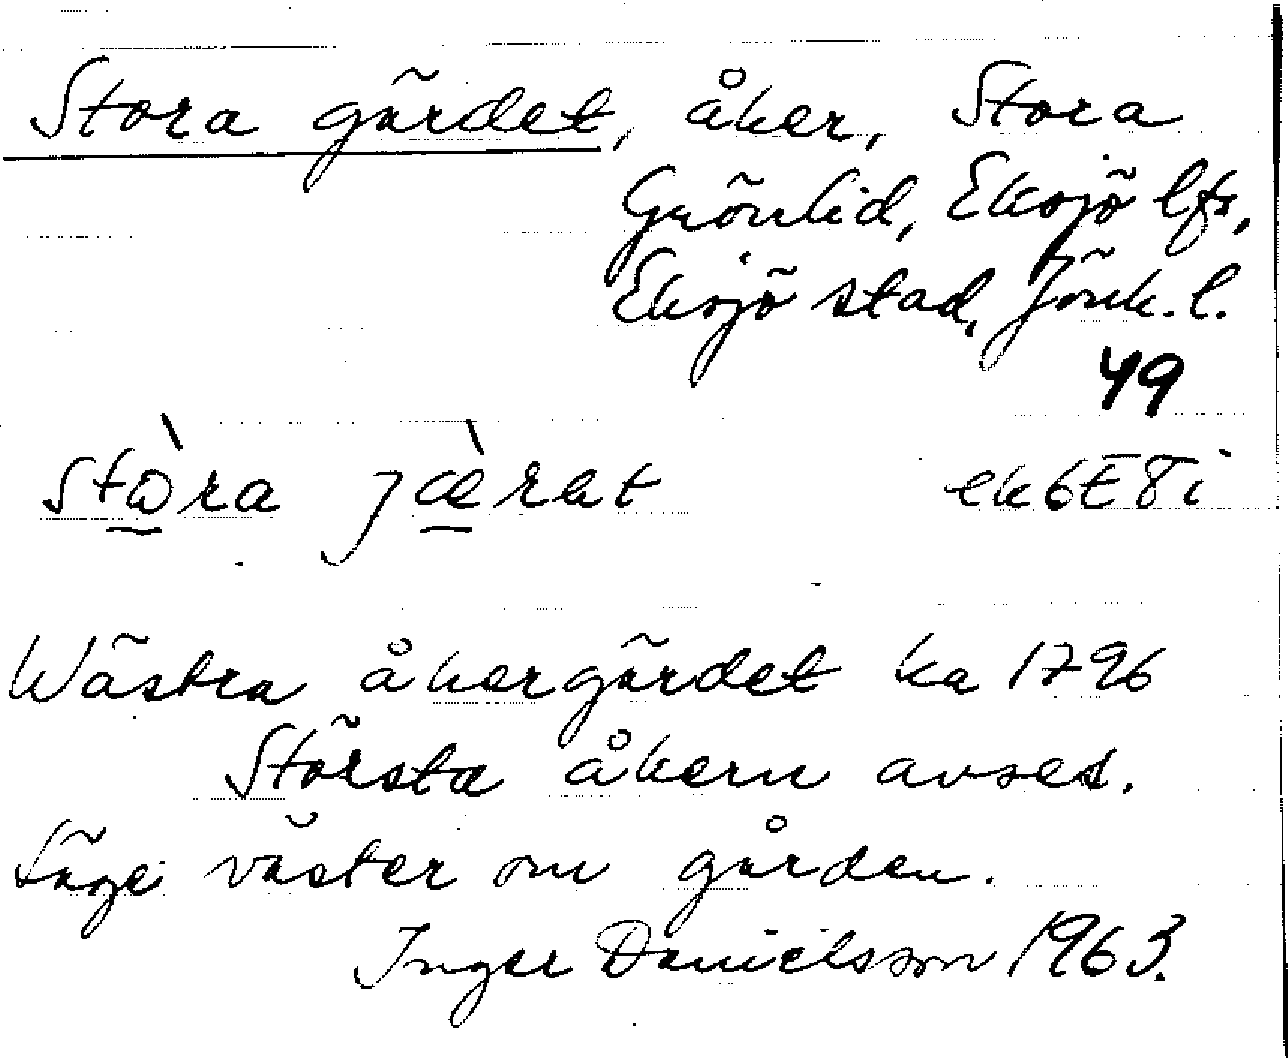 Stora gärdet, åker, Stora
Grönlid, Eksjö lfs,
Eksjö stad, Jönk. l.
49
ek6E8i
Wästra åkergärdet ka 1796
Största åkern avses.
Läge väster om gården.
Inger Danielsson 1963.